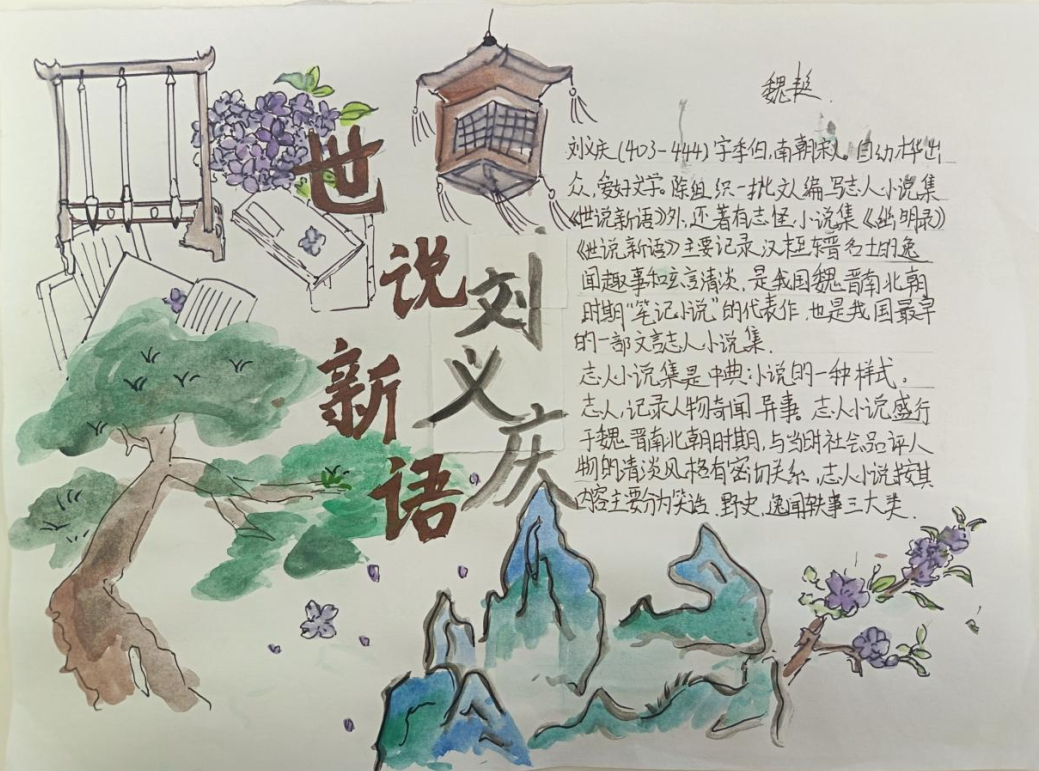 世说新语
刘义庆
魏
刘义庆(403-444)字季伯,南朝宋人。自幼才华出
众,爱好文学。除组织一批文人编写志人小说集
《世说新语》外,还著有志怪小说集《幽明录》
《世说新语》主要记录汉至东晋名士的逸
闻趣事和玄言清谈,是我国魏晋南北朝
时期“笔记小说”的代表作,也是我国最早
的一部文言志人小说集.
志人小说集是中典小说的一种样式。
志人,记录人物奇闻异事。志人小说盛行
于魏晋南北朝时期,与当时社会品评人
物的清淡风格有密切关系,志人小说按其
内容主要分为笑话.野史,逸闻轶事三大类.